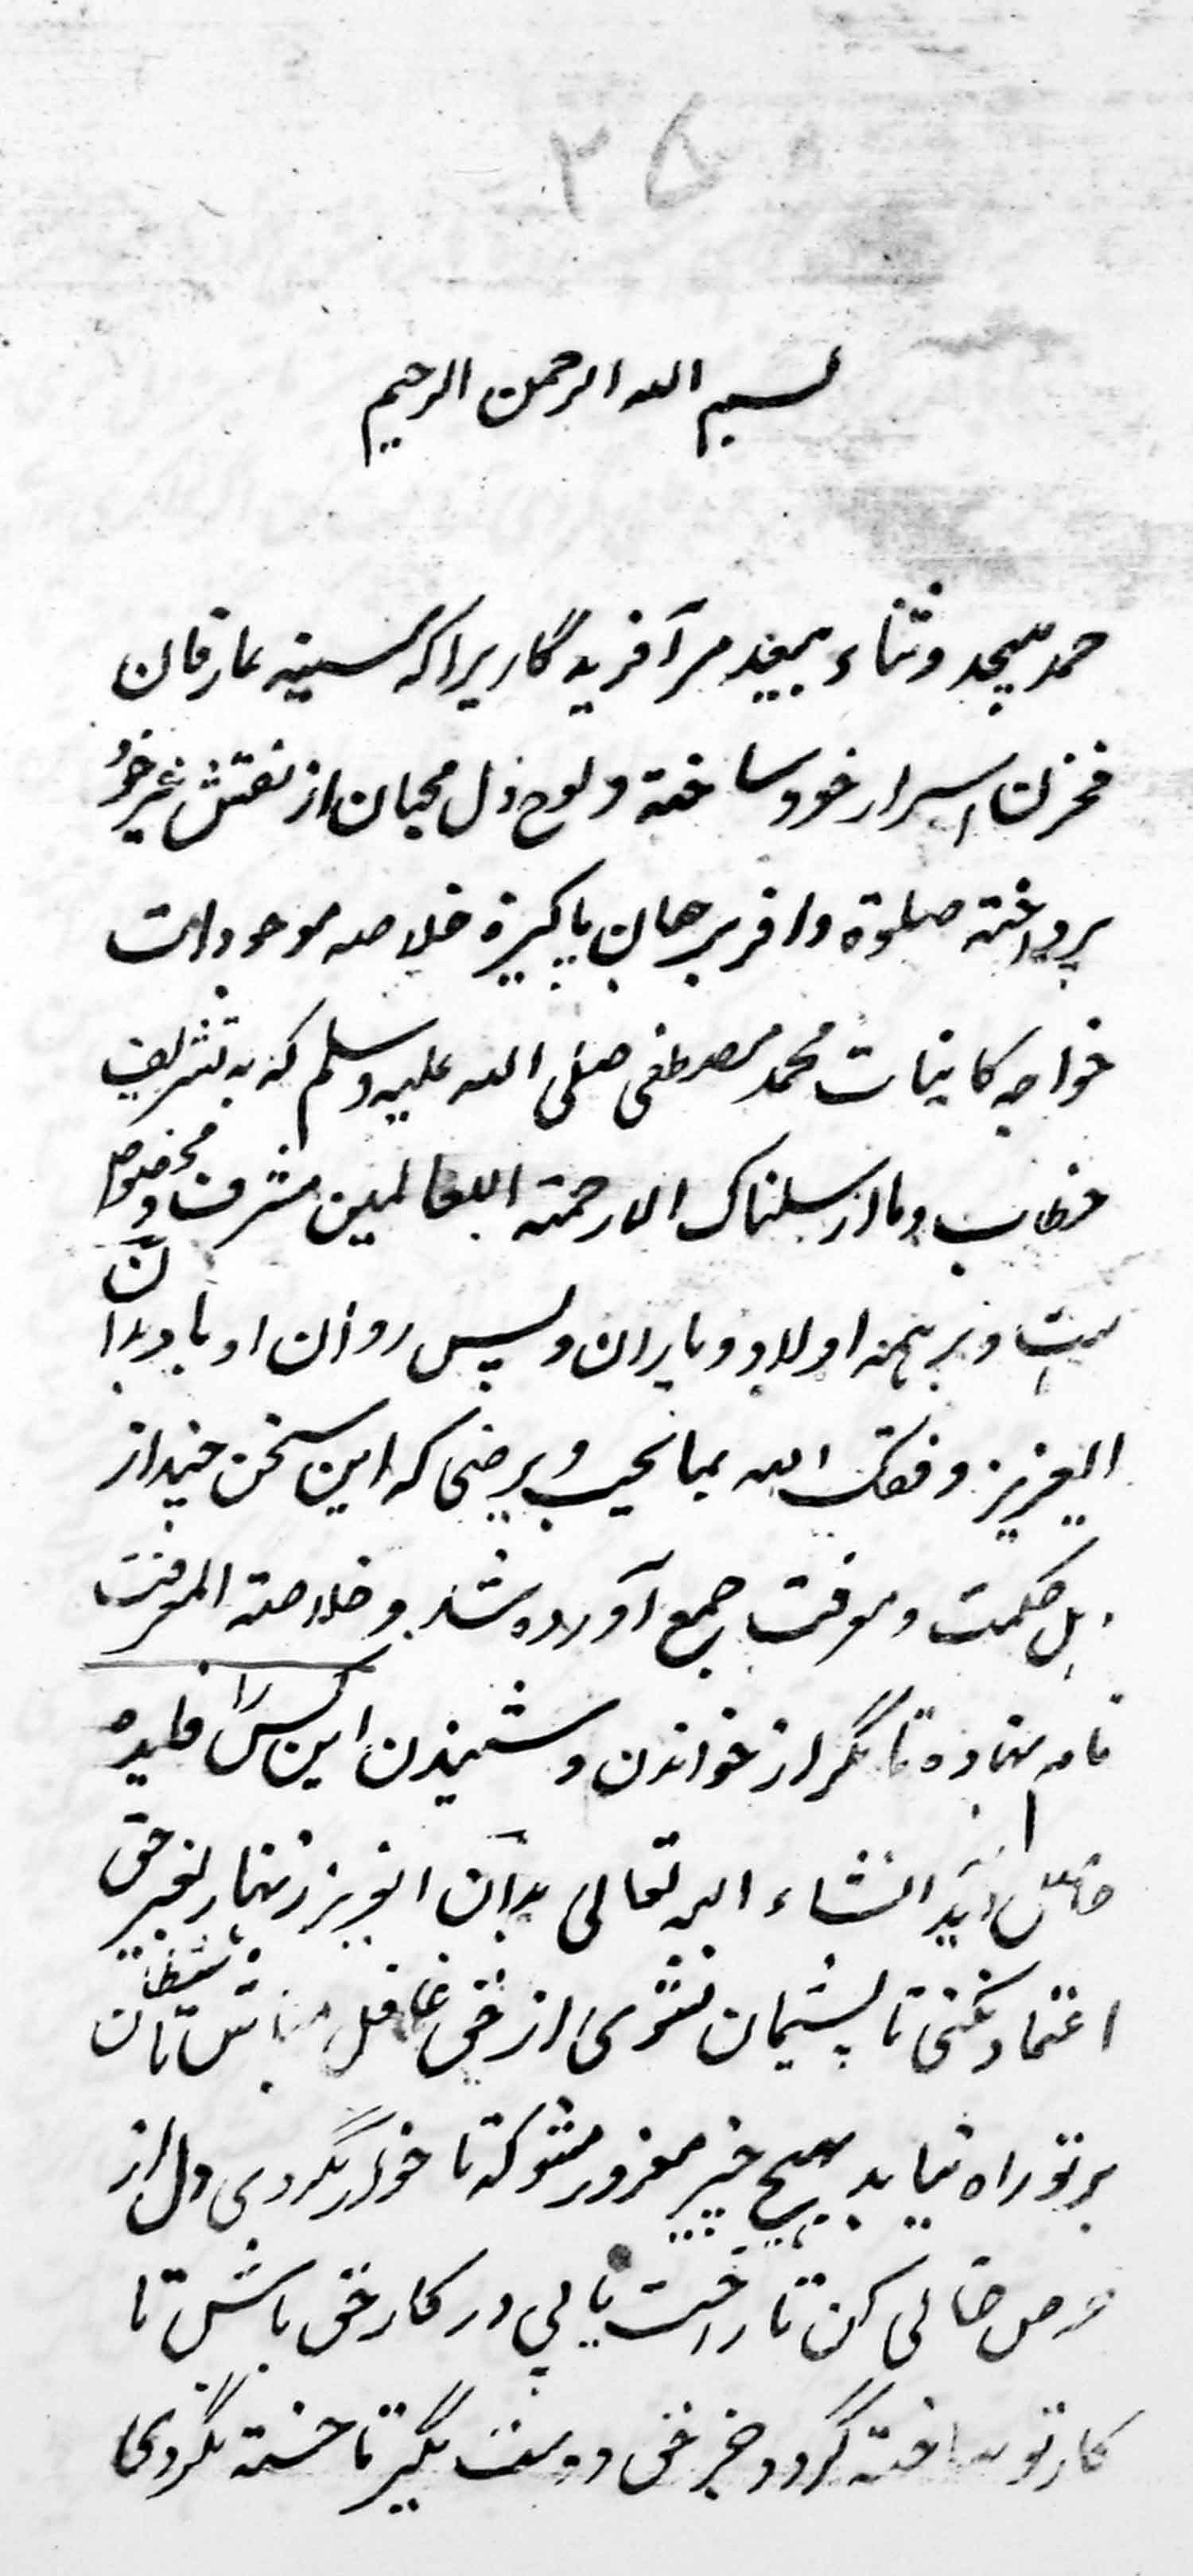 ۲۵
بسم الله الرحمن الرحیم
حمد بیحد وثناء بیعد مر آفریدگاریرا که سینه عارفان
مخزن اسرار خود ساخته و لوح دل محبان از نقش غیر خود
پرداخته صلوة وافر بر جان پاکیزه خلاصه موجودات
خواجه کاینات محمد مصطفی صلی الله علیه وسلم که به تشریف
خطاب وما ارسلناک الا رحمته اللعالمین مشرف و مخصوص
است و بر همه اولاد و یاران و پس روان او باد بدان
ایعزیز وفقک الله بما یحب ویرضی که این سخن چند از
اهل حکمت و معرفت جمع آورده شد و خلاصته المعرفت
نام نهاده تا مگر از خواندن و شنیدن این کس را فایده
حاصل آید انشاء الله تعالی بدان ایعزیز زنهار بغیر حق
اعتماد نکنی تا پشیمان نشوی از حق غافل مباش تا شیطان
بر تو راه نیابد بهیچ چیز مغرور مشو که تا خوار نگردی دل از
حرص خالی کن تا راحت یابی در کار حق باش تا
کار تو ساخته گردد جز حق دوست مگیر تا خسته نگردی